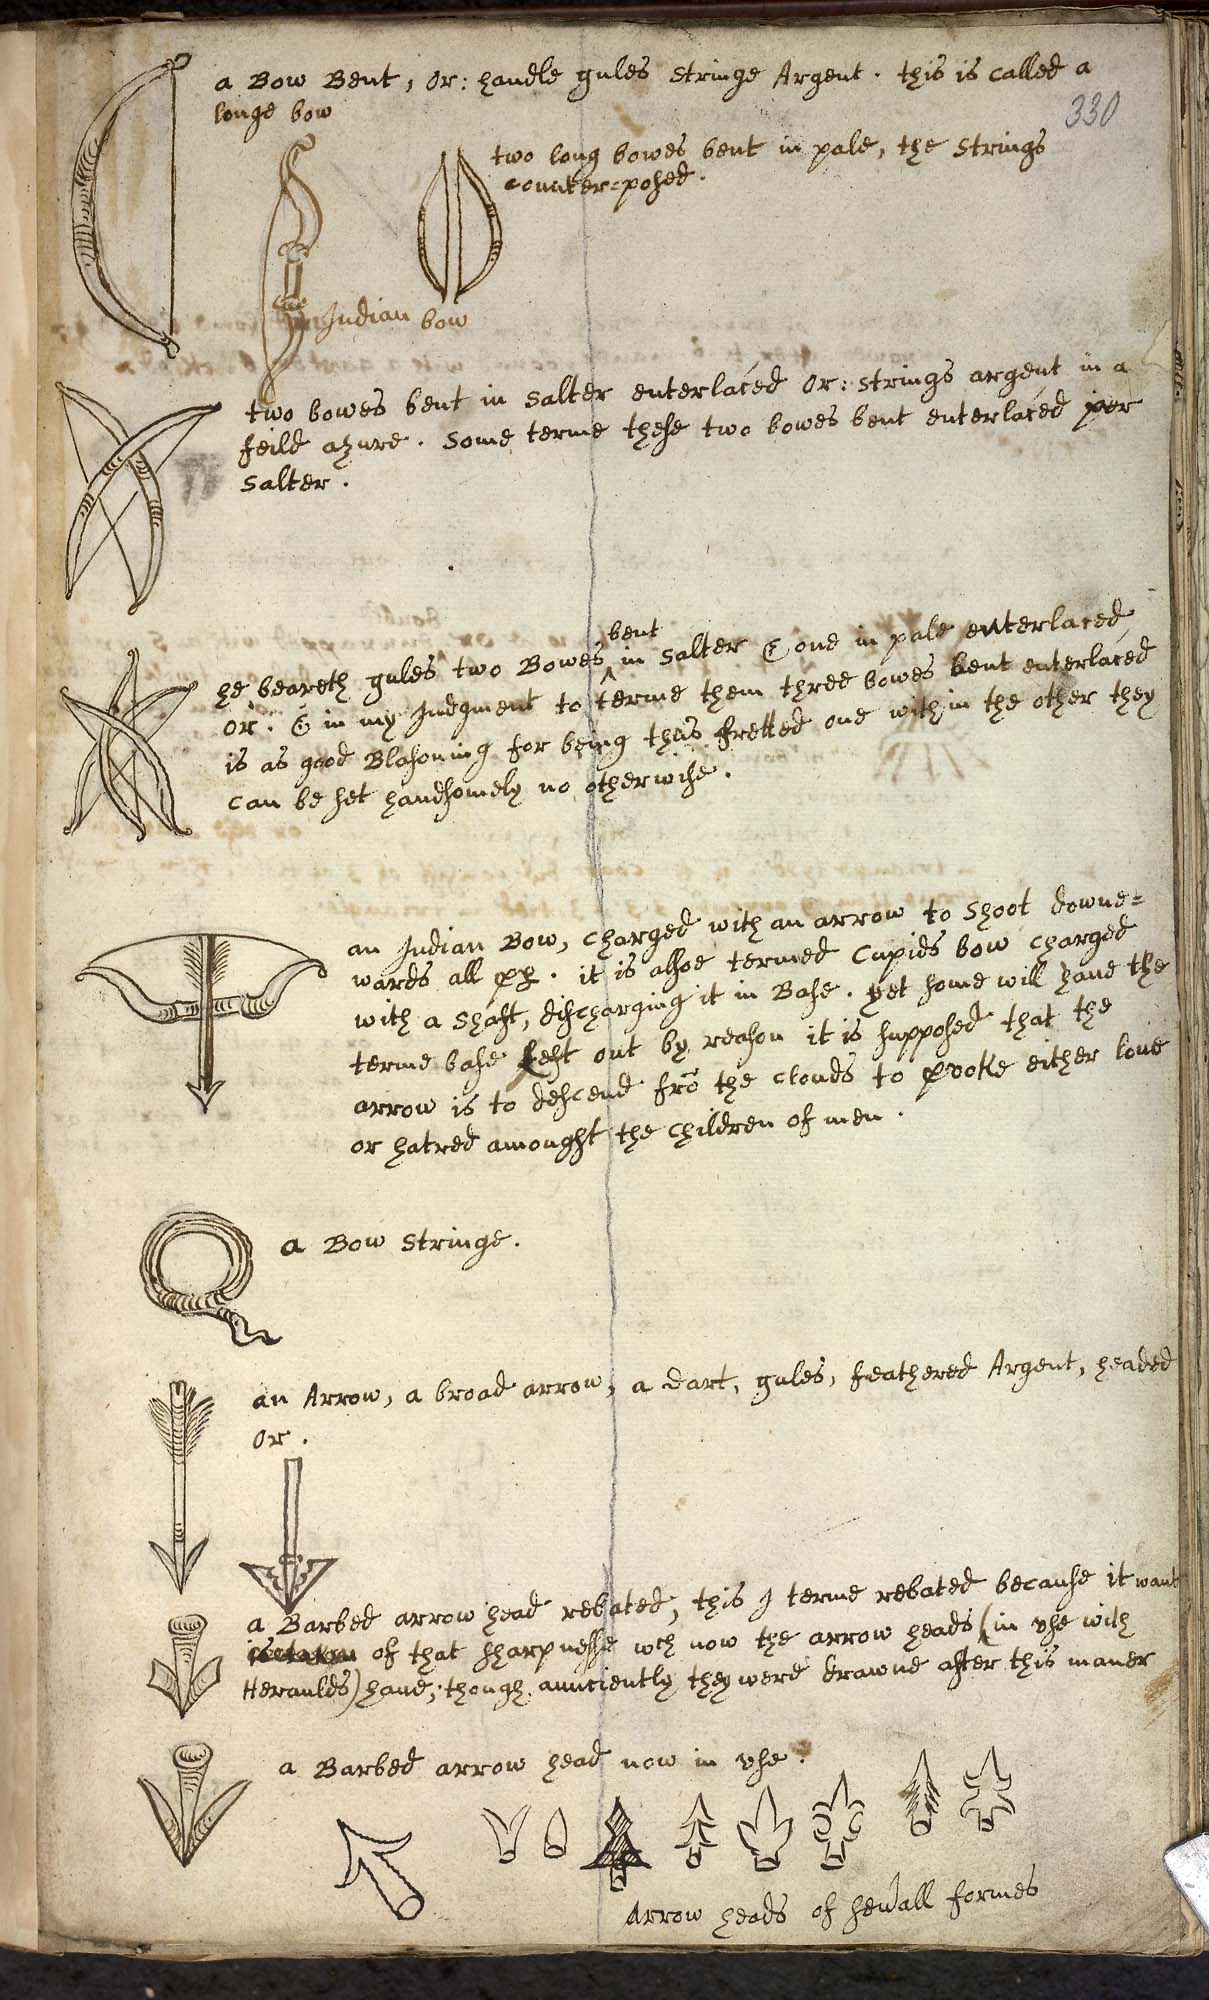 a Bow Bent, Or: handle gules Stringe Argent. this is called a
longe bow
330
two long bowes bent in pale, the Strings
counter=posed.
Indian bow
two bowes bent in Salter enterlaced Or: strings argent in a
feild azure. Some terme these two bowes bent enterlaced per
Salter.
bent
he beareth gules two Bowes ^ in Salter & one in pale enterlaced
Or. & in my Judgment to terme them three bowes bent enterlaced
is as good Blasoning for being thus fretted one within the other they
can be set handsomely no otherwise.
an Indian Bow, charged with an arrow to Shoot downe=
wards all pp. it is alsoe termed Cupids bow charged
with a Shaft, discharging it in Base. yet some will haue the
terme base left out by reason it is supposed that the
arrow is to descend frō the clouds to pvoke either loue
or hatred amongst the children of men.
a Bow Stringe.
an Arrow, a broad arrow, a dart, gules, feathered Argent, headed
Or.
a Barbed arrow head rebated, this I terme rebated because it want
of that sharpnesse wch now the arrow heads (in vse with
Heraulds) haue; though aunciently they were drawne after this maner
a Barbed arrow head now in vse.
Arrow heads of seuall formes